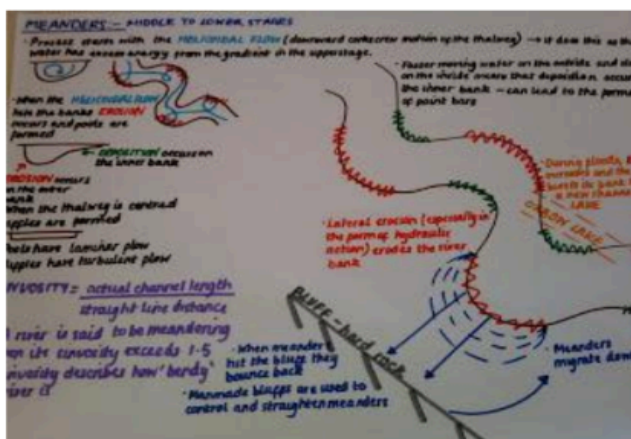 MEANDERS:- MIDDLE TO LOWER STAGES
· Process starts with the HELICOIDAL FLOW (downward corkscrew motion up the thalweg) → it does this as the
water has excess energy from the gradient in the upperstage.
· When the HELICOIDAL FLOW
hits the banks EROSION
occurs and pools are
formed
← DEPOSITION occurs on
the inner bank
EROSION occurs
on the outer
bank
When the thalweg is centred
riffles are formed
Pools have laminar flow
Riffles have turbulent flow
SINUOSITY = actual channel length
straight line distance
A river is said to be meandering
when its sinuosity exceeds 1-5
sinuosity describes how "bendy"
river is
· Faster moving water on the outside and
on the inside means that deposition
the inner bank - can lead to the
of point bars
· During floods,
and the
bursts its bank
a new channel
LAKE
OXBOW LAKE
· Lateral erosion (especially in
the form of hydraulic
action) erodes the river
bank
BLUFF - hard rock
· When meanders
hit the bluff they
bounce back
· Manmade bluffs are used to
control and straighten meanders
· Meanders
migrate